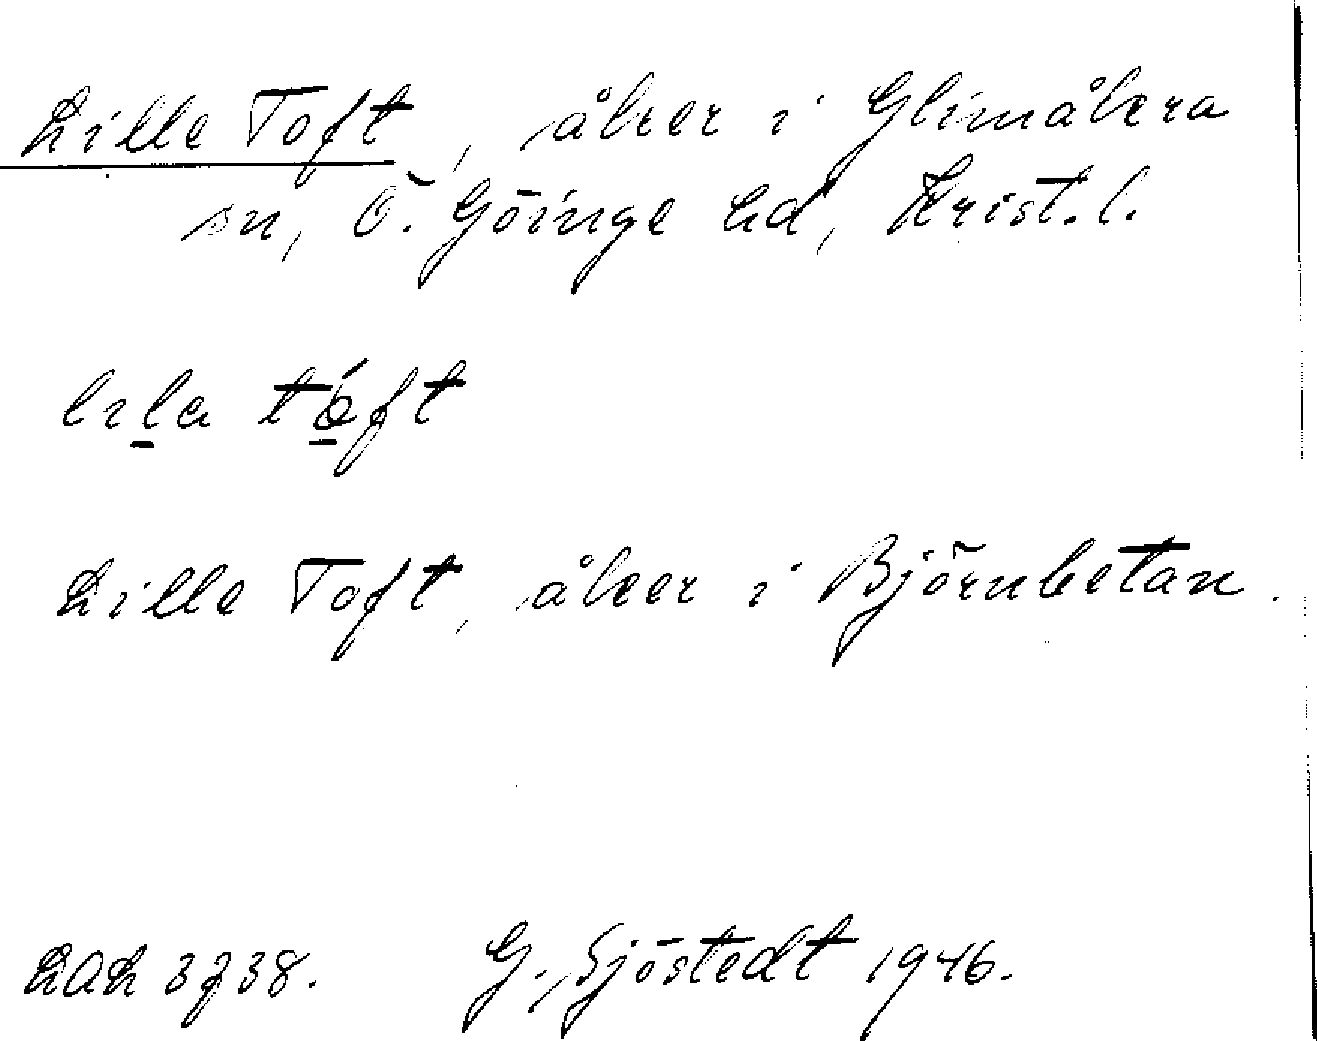 Lille Toft, åker i Glimåkra
sn, Ö. Göinge hd, Krist. l.
lila tóft
Lille Toft, åker i Björnbetan.
LAL 3738. G. Sjöstedt 1946.